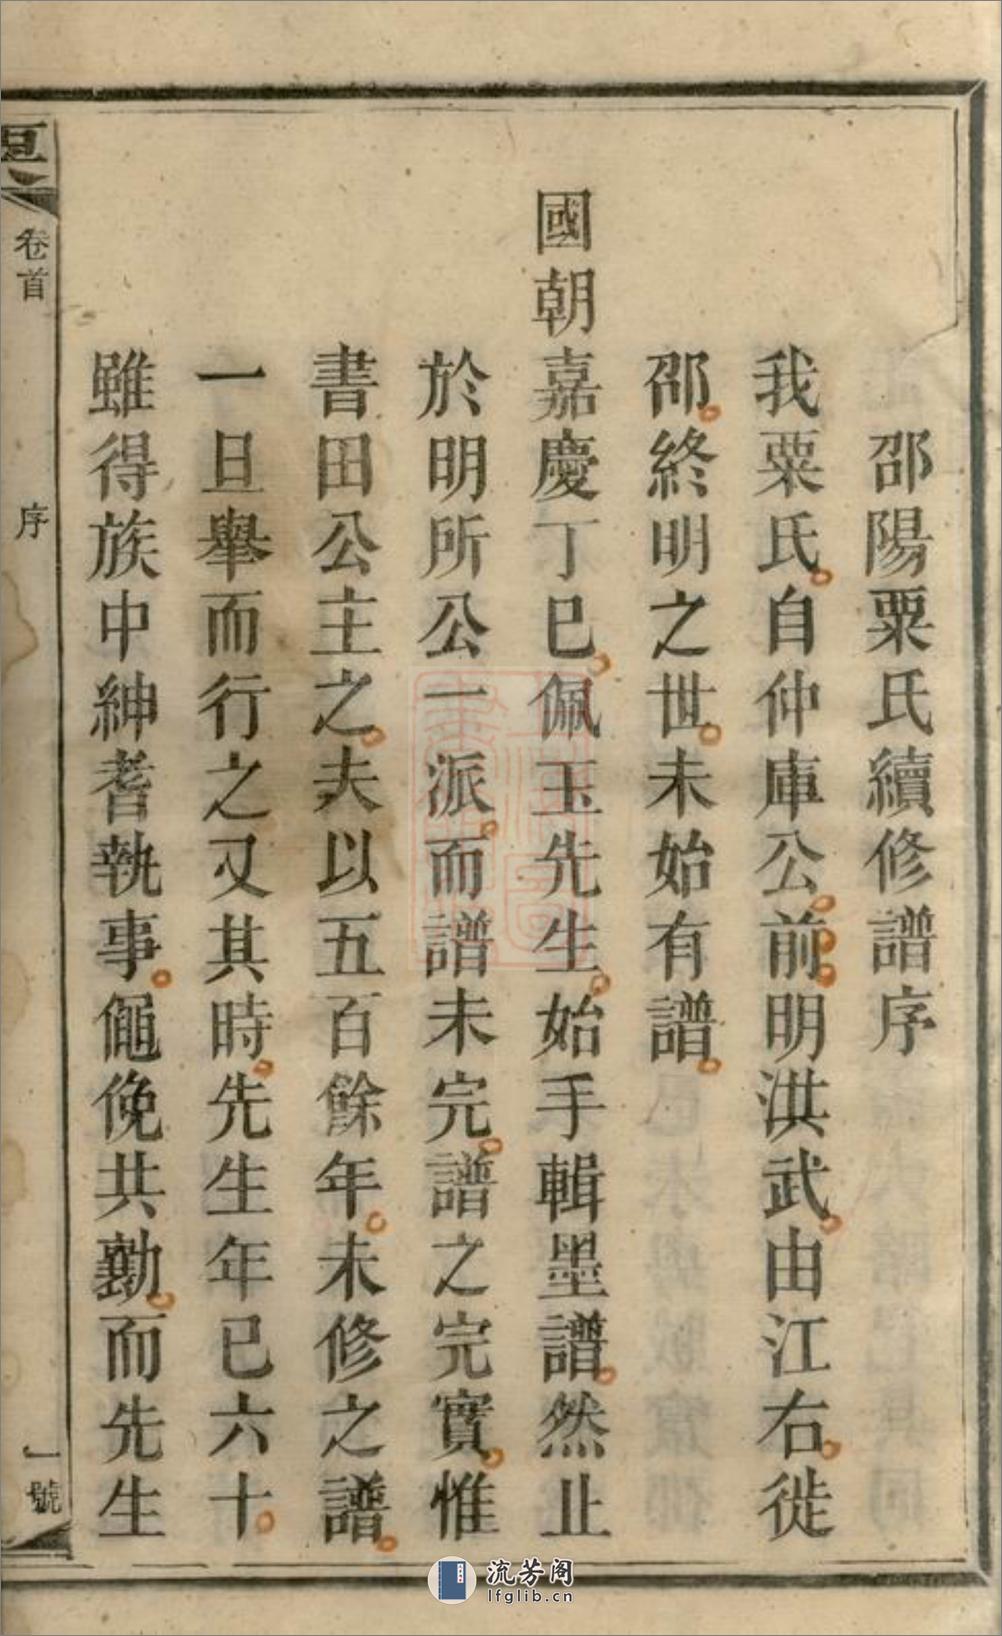 邵陽粟氏續修譜序
我粟氏。自仲庫公。前。明洪武。由江右。徙
邵。終明之世。未始有譜。
國朝嘉慶丁巳。佩玉先生。始手輯墨譜。然止
於明所公一派。而譜未完。譜之完實。惟
書田公主之。夫以五百餘年。未修之譜。
一旦舉而行之又其時。先生年已六十。
雖得族中紳耆執事。僶俛共勷。而先生
卷首
序
一號
流芳阁
lfglib.cn